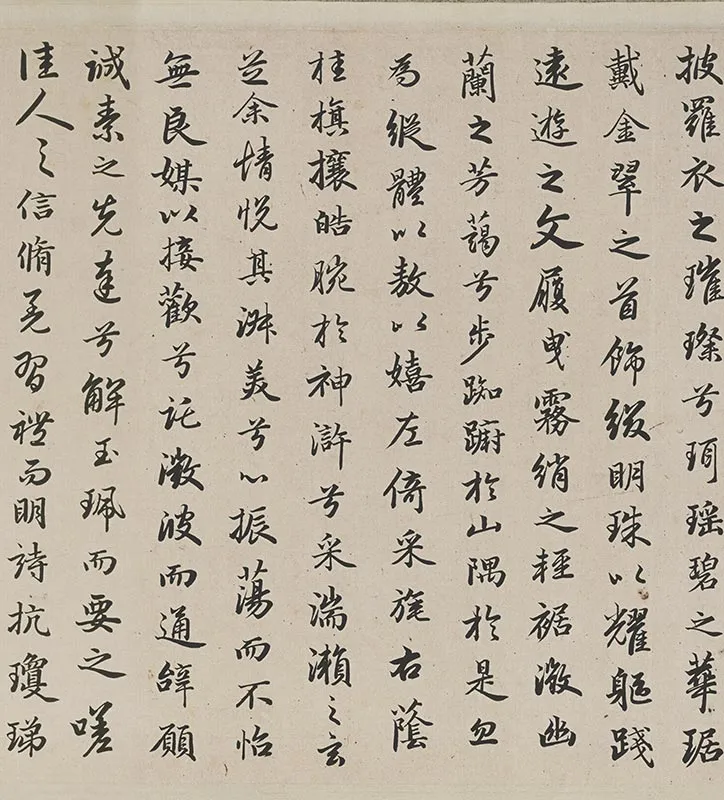 披羅衣之璀璨兮珥瑶碧之華琚
戴金翠之首飾綴明珠以耀軀踐
遠遊之文履曳霧綃之輕裾微幽
蘭之芳藹兮步踟躕於山隅於是忽
焉縱體以敖以嬉左倚采旄右蔭
桂旗攘皓腕於神滸兮采湍瀨之玄
芝余情悦其淑美兮心振蕩而不怡
無良媒以接歡兮託微波而通辭願
誠素之先達兮解玉珮而要之嗟
佳人之信脩羌習禮而明詩抗瓊珶